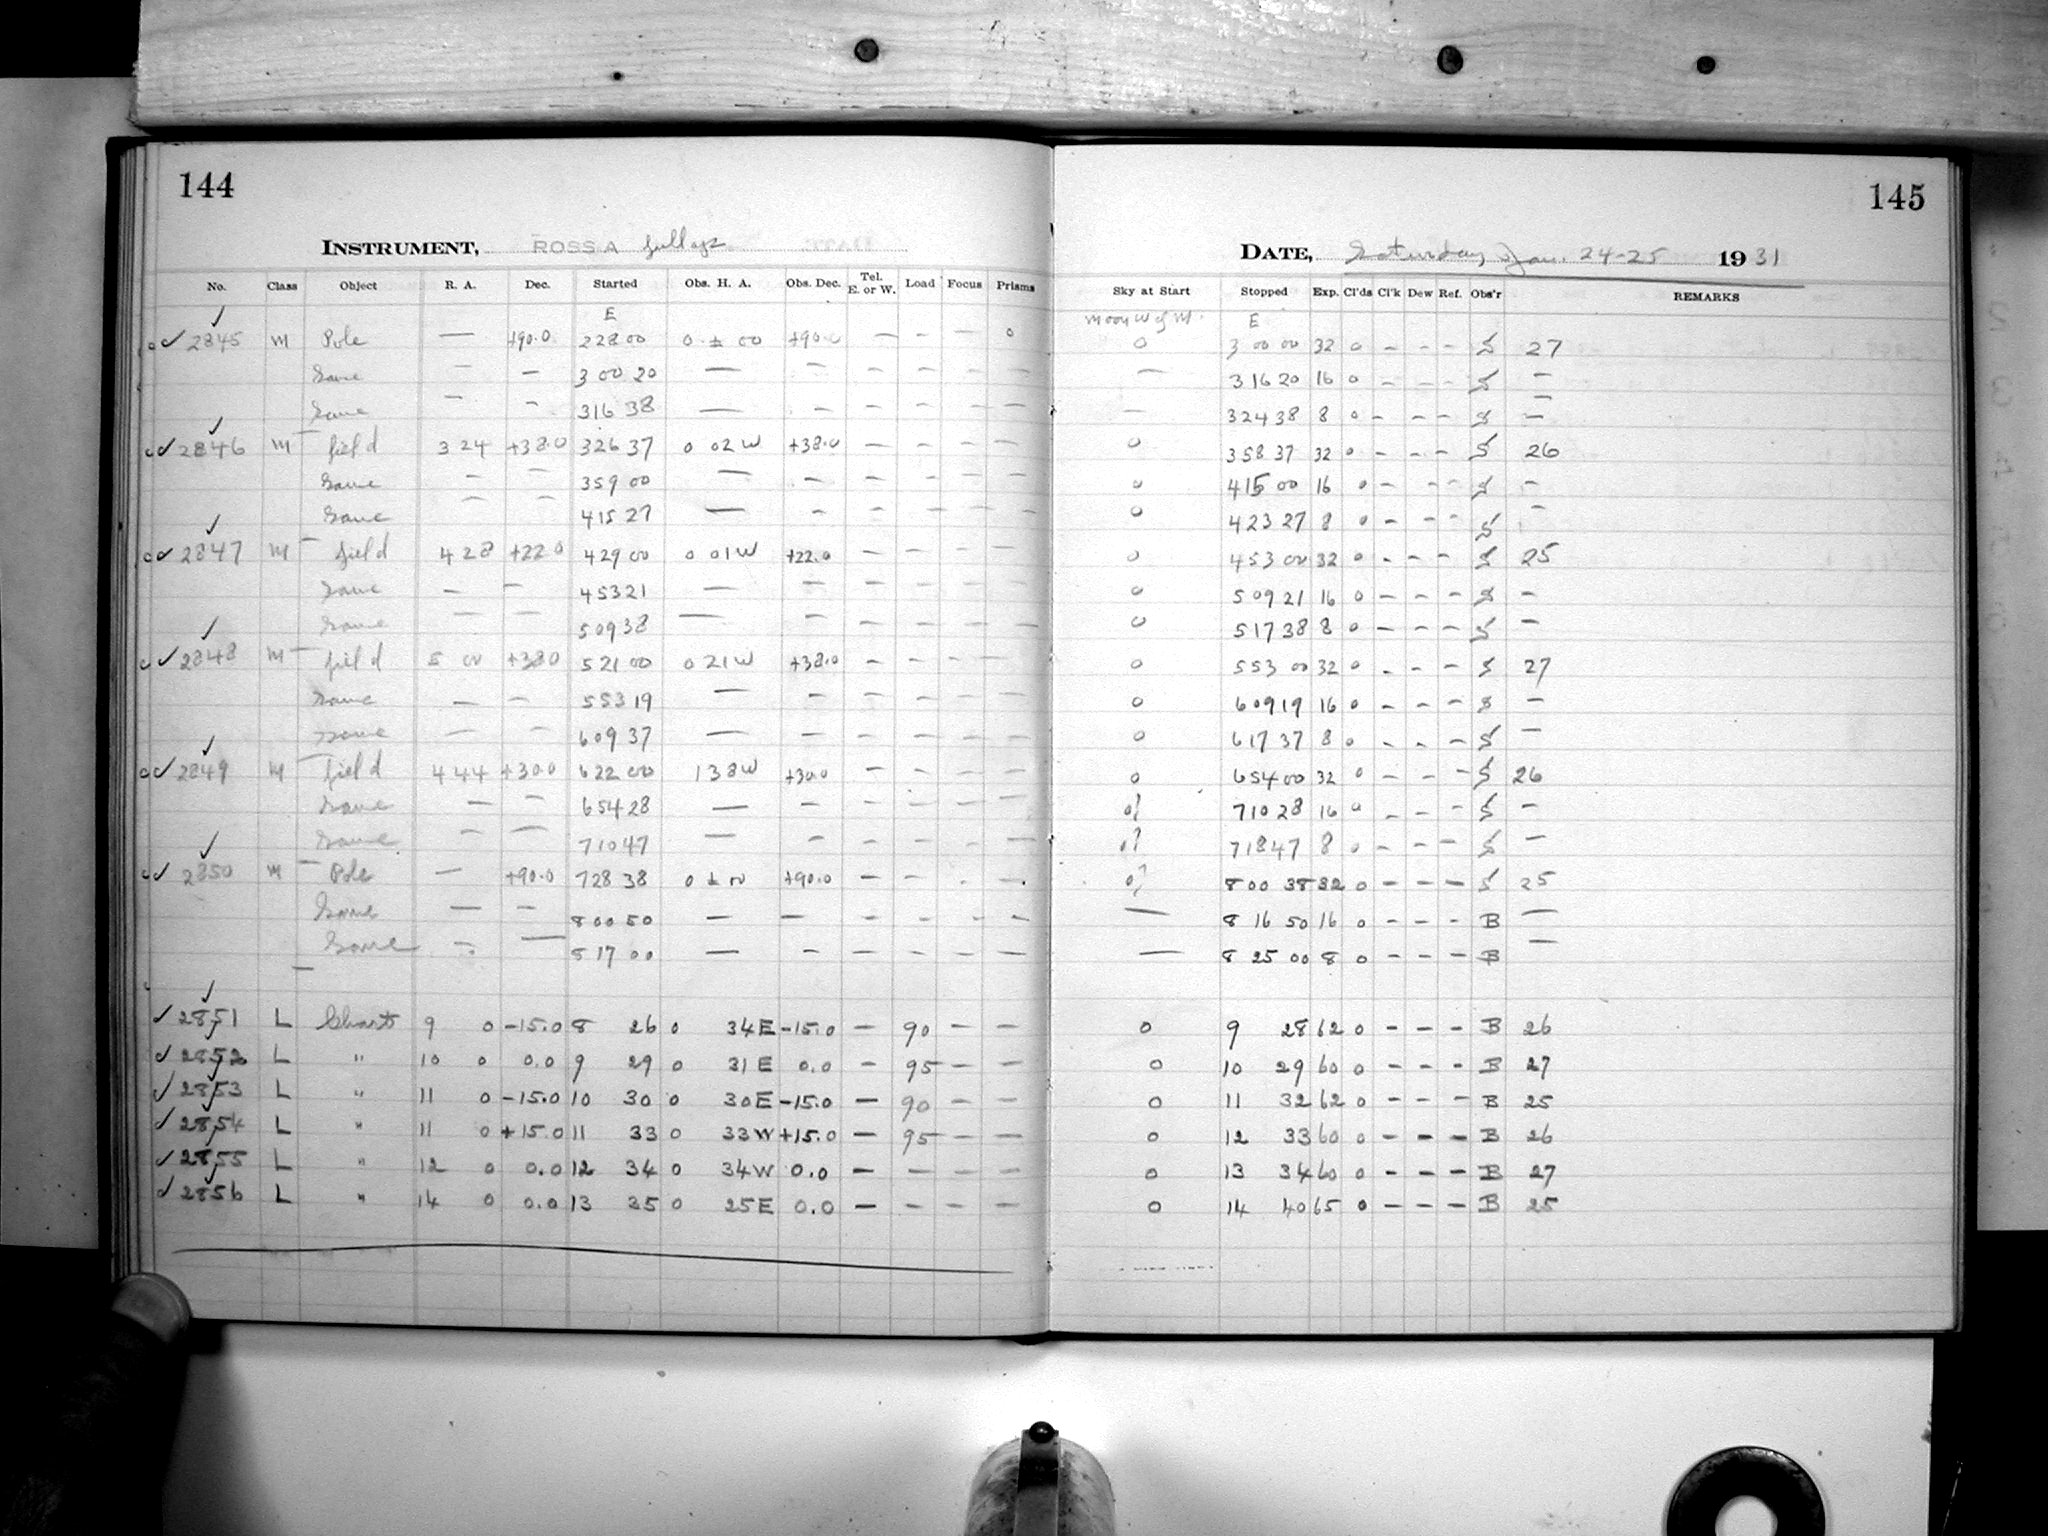 144
INSTRUMENT, ROSS A full ap.
No. Class Object R. A. Dec. Started Obs. H. A. Obs. Dec. Tel. E. or W. Load Focus Prisms
E
✓ 2845 M Pole — +90.0 2 28 00 0 ± 00 +90.0 — — — 0
Same — — 3 00 20 — — — — — —
Same — — 3 16 38 — — — — — —
✓ 2846 M field 3 24 +38.0 3 26 37 0 02 W +38.0 — — — —
Same — — 3 59 00 — — — — — —
Same — — 4 15 27 — — — — — —
✓ 2847 M field 4 28 +22.0 4 29 00 0 01 W +22.0 — — — —
Same — — 4 53 21 — — — — — —
Same — — 5 09 38 — — — — — —
✓ 2848 M field 5 00 +38.0 5 21 00 0 21 W +38.0 — — — —
Same — — 5 53 19 — — — — — —
Same — — 6 09 37 — — — — — —
✓ 2849 M field 4 44 +30.0 6 22 00 1 38 W +30.0 — — — —
Same — — 6 54 28 — — — — — —
Same — — 7 10 47 — — — — — —
✓ 2850 M Pole — +90.0 7 28 38 0 ± 00 +90.0 — — — —
Same — — 8 00 50 — — — — — —
Same — — 8 17 00 — — — — — —
✓ 2851 L Chart 9 0 -15.0 8 26 0 34 E -15.0 — 90 — —
✓ 2852 L " 10 0 0.0 9 29 0 31 E 0.0 — 95 — —
✓ 2853 L " 11 0 -15.0 10 30 0 30 E -15.0 — 90 — —
✓ 2854 L " 11 0 +15.0 11 33 0 33 W +15.0 — 95 — —
✓ 2855 L " 12 0 0.0 12 34 0 34 W 0.0 — — — —
✓ 2856 L " 14 0 0.0 13 35 0 25 E 0.0 — — — —
145
DATE, Saturday, Jan. 24-25 1931
Sky at Start Stopped Exp. Cl'ds Cl'k Dew Ref. Obs'r REMARKS
Moon W of M. E
0 3 00 00 32 0 — — — S 27
— 3 16 20 16 0 — — — S —
— 3 24 38 8 0 — — — S —
0 3 58 37 32 0 — — — S 26
0 4 15 00 16 0 — — — S —
0 4 23 27 8 0 — — — S —
0 4 53 00 32 0 — — — S 25
0 5 09 21 16 0 — — — S —
0 5 17 38 8 0 — — — S —
0 5 53 00 32 0 — — — S 27
0 6 09 19 16 0 — — — S —
0 6 17 37 8 0 — — — S —
0 6 54 00 32 0 — — — S 26
0? 7 10 28 16 0 — — — S —
0? 7 18 47 8 0 — — — S —
0? 8 00 38 32 0 — — — S 25
— 8 16 50 16 0 — — — B —
— 8 25 00 8 0 — — — B —
0 9 28 62 0 — — — B 26
0 10 29 60 0 — — — B 27
0 11 32 62 0 — — — B 25
0 12 33 60 0 — — — B 26
0 13 34 60 0 — — — B 27
0 14 40 65 0 — — — B 25